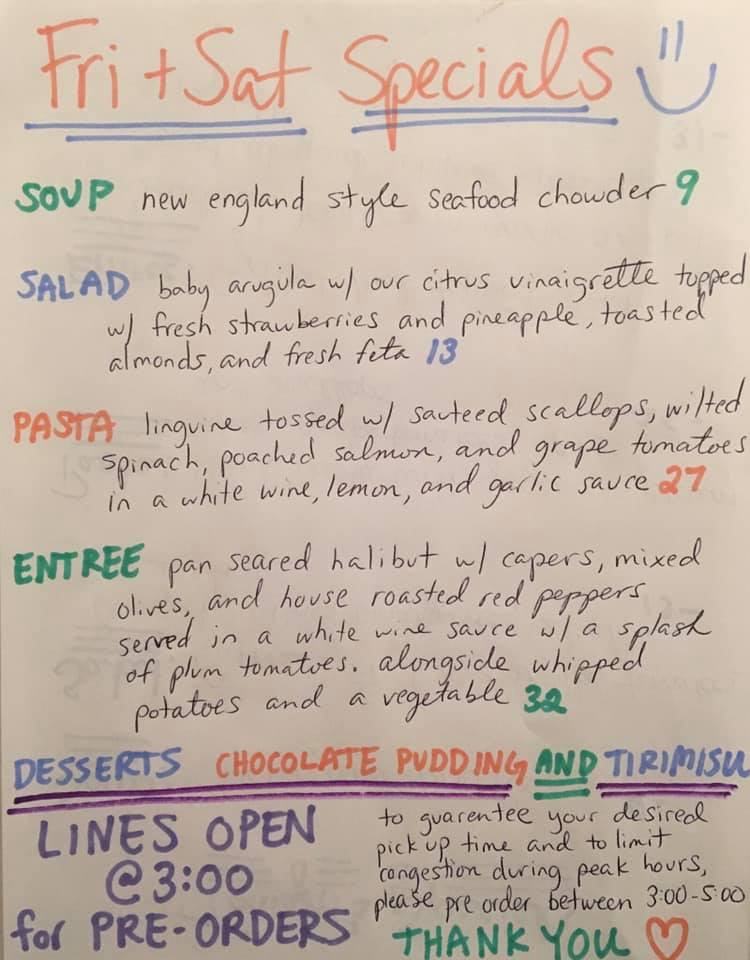 Fri + Sat Specials
SOUP new england style seafood chowder 9
SALAD baby arugula w/ our citrus vinaigrette topped
w/ fresh strawberries and pineapple, toasted
almonds, and fresh feta 13
PASTA linguine tossed w/ sauteed scallops, wilted
spinach, poached salmon, and grape tomatoes
in a white wine, lemon, and garlic sauce 27
ENTREE pan seared halibut w/ capers, mixed
olives, and house roasted red peppers
served in a white wine sauce w/ a splash
of plum tomatoes. alongside whipped
potatoes and a vegetable 32
DESSERTS CHOCOLATE PUDDING AND TIRIMISU
LINES OPEN
@ 3:00
for PRE-ORDERS
to guarentee your desired
pick up time and to limit
congestion during peak hours,
please pre order between 3:00-5:00
THANK YOU